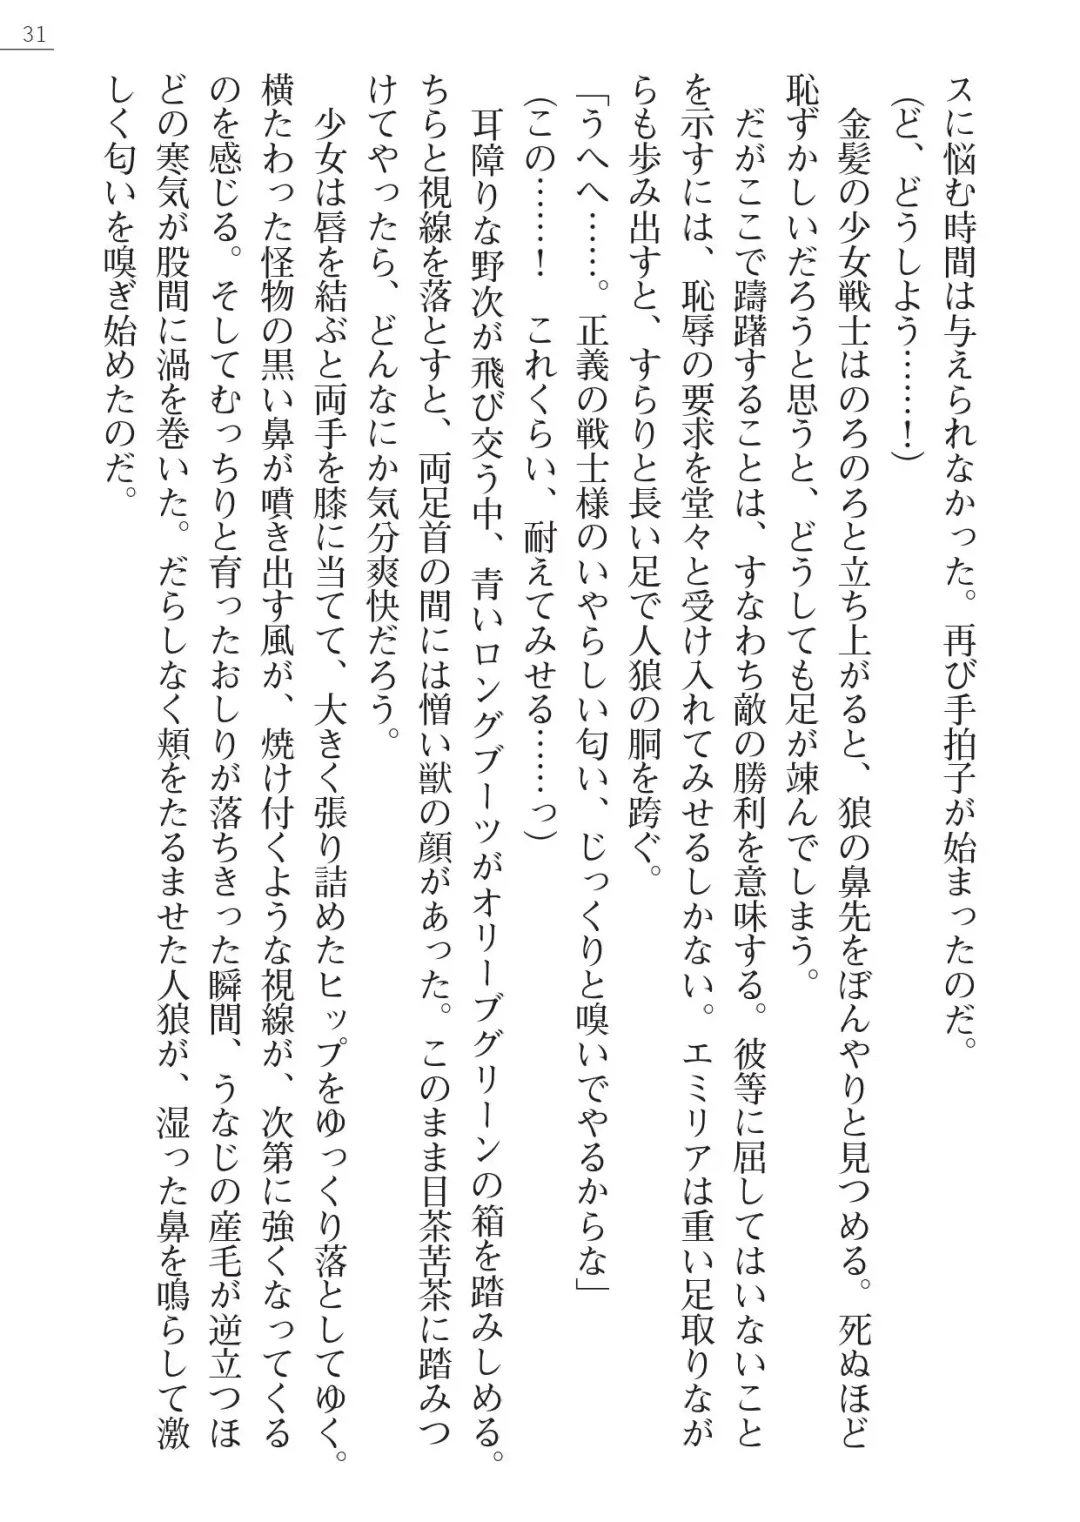 31
スに悩む時間は与えられなかった。再び手拍子が始まったのだ。
(ど、どうしよう……！)
金髪の少女戦士はのろのろと立ち上がると、狼の鼻先をぼんやりと見つめる。死ぬほど
恥ずかしいだろうと思うと、どうしても足が竦んでしまう。
だがここで躊躇することは、すなわち敵の勝利を意味する。彼等に屈してはいないこと
を示すには、恥辱の要求を堂々と受け入れてみせるしかない。エミリアは重い足取りなが
らも歩み出すと、すらりと長い足で人狼の胴を跨ぐ。
「うへへ……。正義の戦士様のいやらしい匂い、じっくりと嗅いでやるからな」
(この……！　これくらい、耐えてみせる……っ)
耳障りな野次が飛び交う中、青いロングブーツがオリーブグリーンの箱を踏みしめる。
ちらと視線を落とすと、両足首の間には憎い獣の顔があった。このまま目茶苦茶に踏みつ
けてやったら、どんなにか気分爽快だろう。
少女は唇を結ぶと両手を膝に当てて、大きく張り詰めたヒップをゆっくり落としてゆく。
横たわった怪物の黒い鼻が噴き出す風が、焼け付くような視線が、次第に強くなってくる
のを感じる。そしてむっちりと育ったおしりが落ちきった瞬間、うなじの産毛が逆立つほ
どの寒気が股間に渦を巻いた。だらしなく頬をたるませた人狼が、湿った鼻を鳴らして激
しく匂いを嗅ぎ始めたのだ。